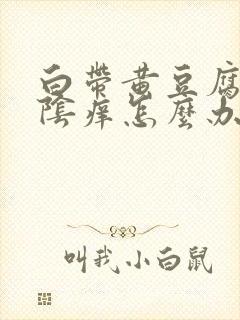 白帶黄豆腐
陰痒怎麽办
叫我小白鼠